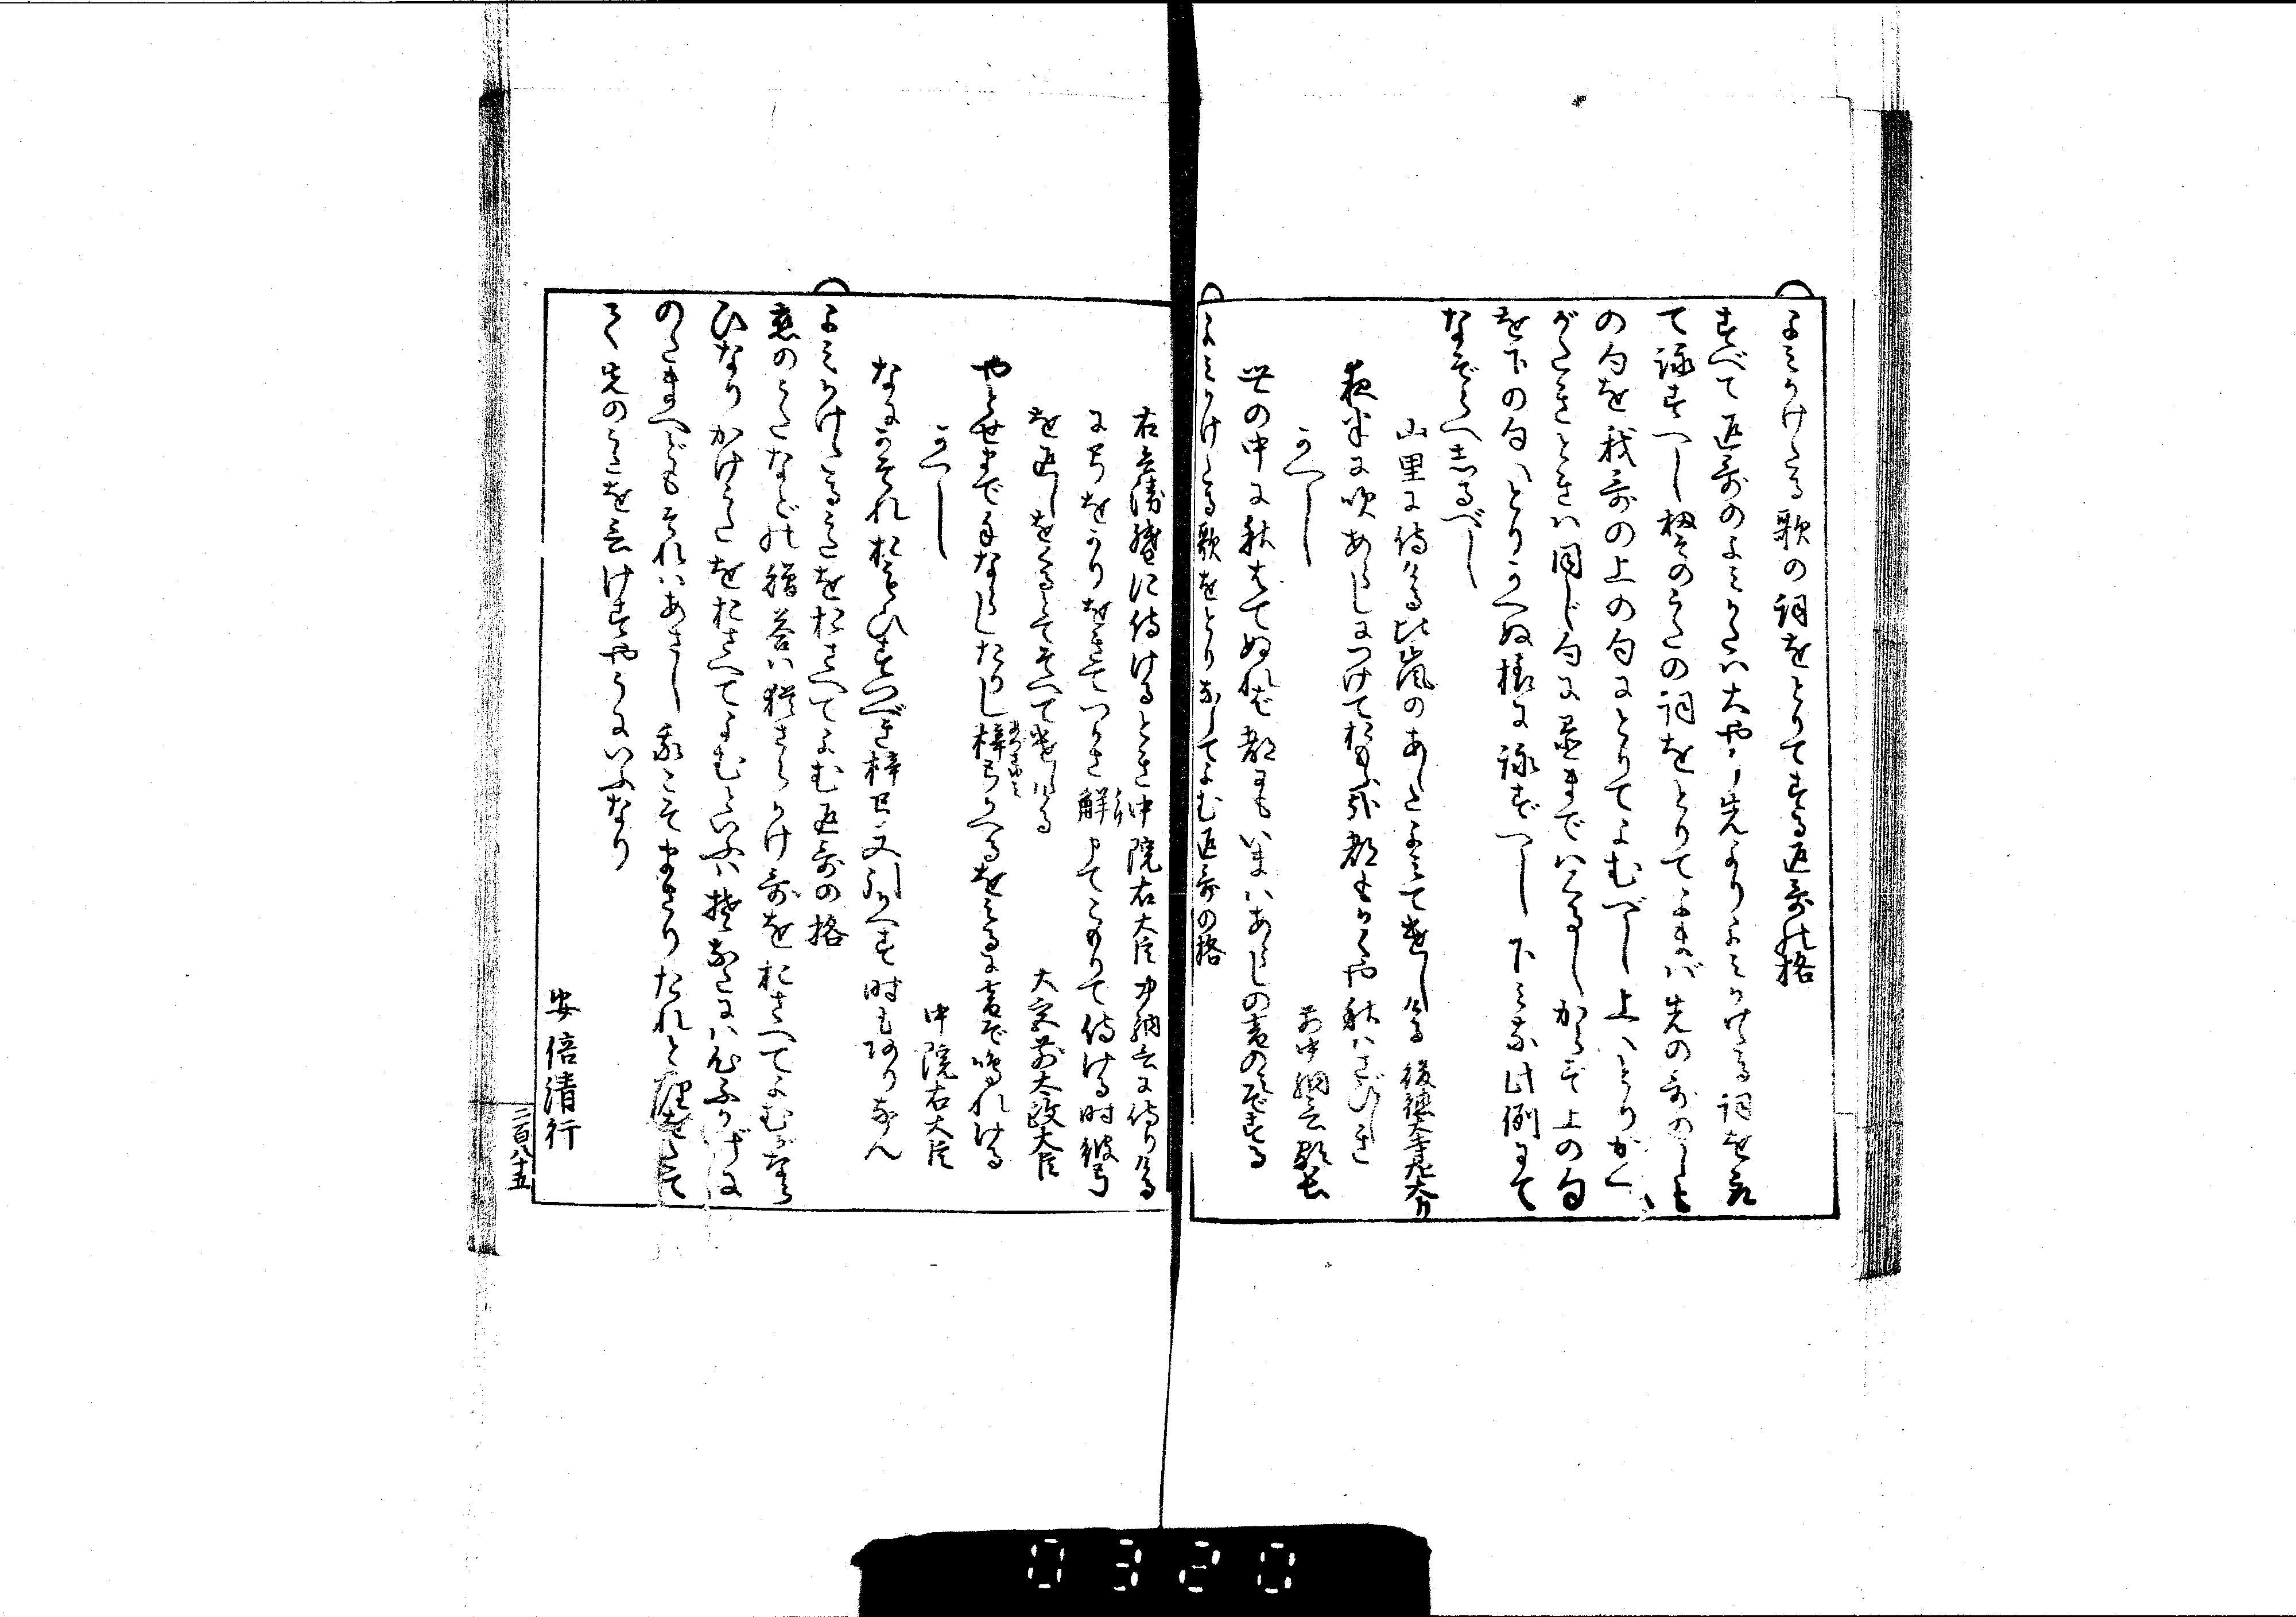 よみかけたる歌の詞をとりてする返哥の格
すべて返哥のよみかたは大やう先よりよみかけたる詞を
て詠すべし扨そのうたの詞をとりてよまば先の哥のしも
の句を我哥の上の句にとりてよむべし上はとりかへ
がたきときは同じ句に置まではくるしからず上の句
を下の句へとりかへぬ様に詠ずべし下みな此例にて
なぞらへしるべし
山里に侍ける比嵐のあしたよみて遣しける 後徳大寺左大臣
夜半に吹あらしにつけておもふ哉都もかくや秋はさびしき
かへし 前中納言顕長
世の中に秋はてぬれば都にもいまはあらしの音のみぞする
よみかけたる歌をとりなしてよむ返哥の格
右兵衛督に侍けるとき中院右大臣中納言に侍りける
に弓をかりをきてつかさ解てこもりて侍ける時彼弓
を返しをくるとてそへて遣しける 大宮前太政大臣
やとせまで手ならしたりし梓弓かへるをみるに音ぞ鳴れける
かへし 中院右大臣
なにかそれおもひすつべき梓弓又引かへす時もありなん
よみかけたるうたをおさへてよむ返哥の格
恋のうたなどの贈答は猶さらかけ哥をおさへてよむがなら
ひなりかけうたをおさへてよむといふは
のたまへどもそれはあさし我こそまさりたれと
先のうたを云けすやうにいふなり
安倍清行
二百八十五
0320